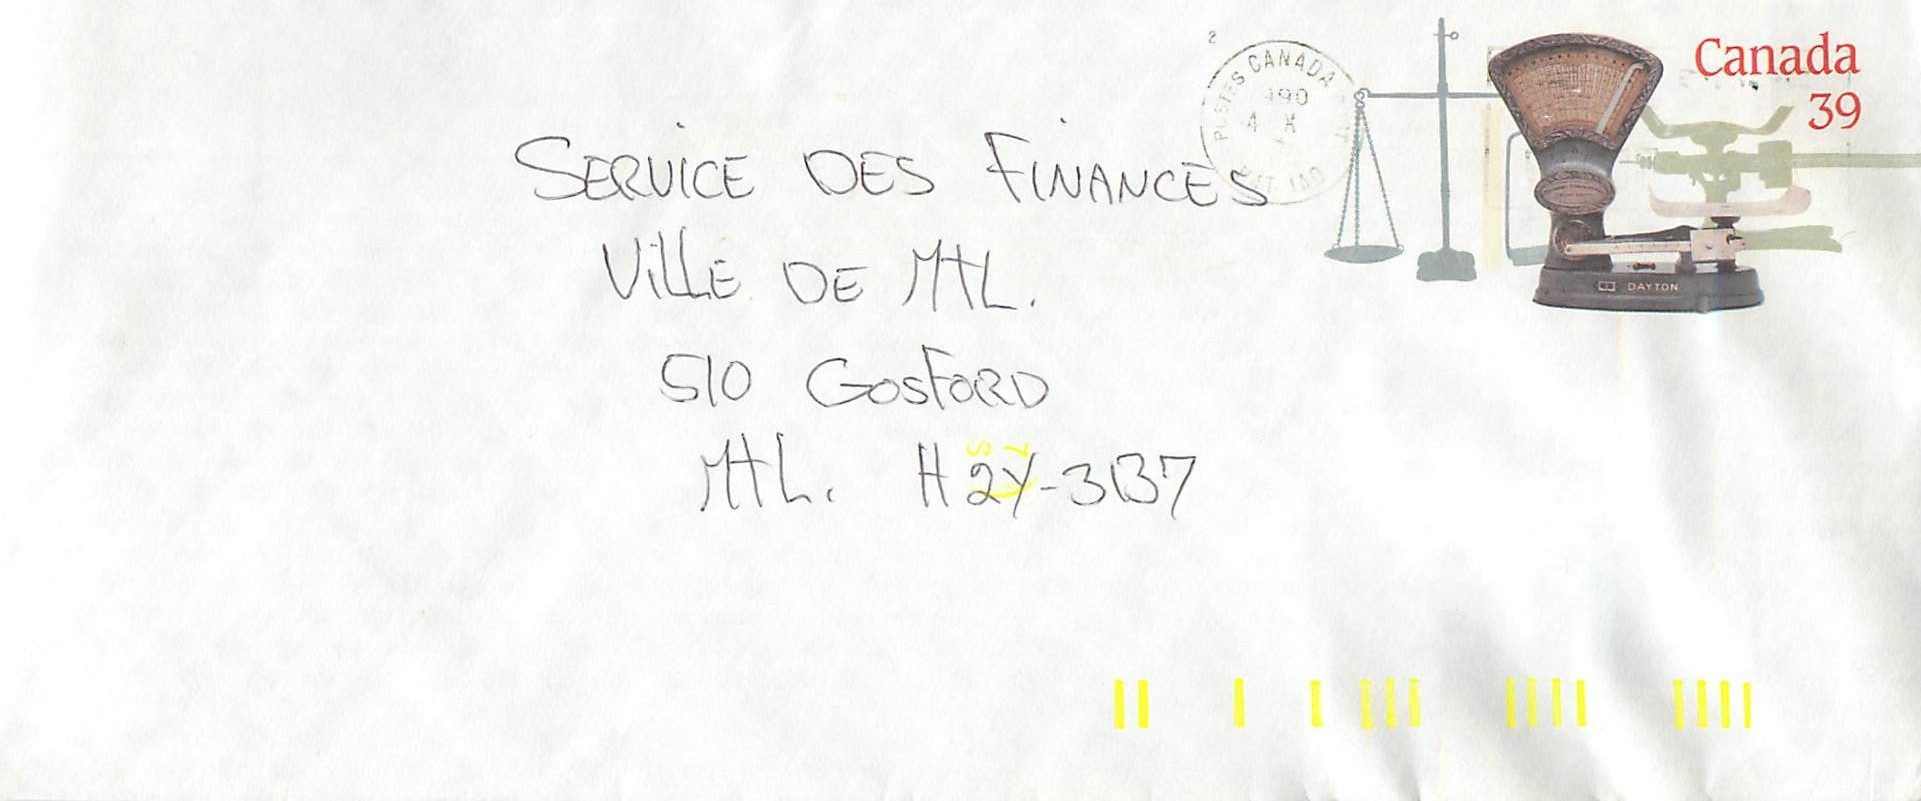 2
POSTES CANADA
Canada
39
DAYTON
SERVICE DES FINANCES
VILLE DE MTL.
510 GOSFORD
MTL. H2Y-3B7